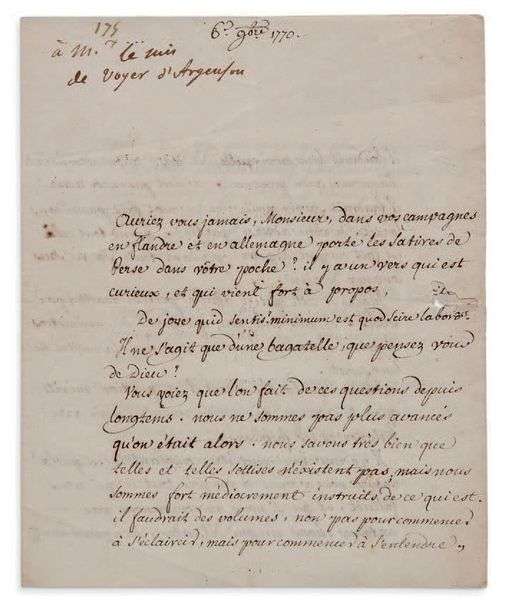 175
6e 9bre 1770.
à M.r le mis
de Voyer d'Argenson
Auriez vous jamais, Monsieur, dans vos campagnes
en flandre et en allemagne porté les satires de
Perse dans vôtre poche? il y a un vers qui est
curieux, et qui vient fort à propos,
De jove quid sentis? minimum est quod scire laboro.
Il ne s'agit que d'une bagatelle, que pensez vous
de Dieu?
Vous voiez que l'on fait de ces questions depuis
longtems. nous ne sommes pas plus avancés
qu'on était alors. nous savons très bien que
telles et telles sottises n'existent pas, mais nous
sommes fort médiocrement instruits de ce qui est.
il faudrait des volumes, non pas pour commencer
à s'éclaircir, mais pour commencer à s'entendre.